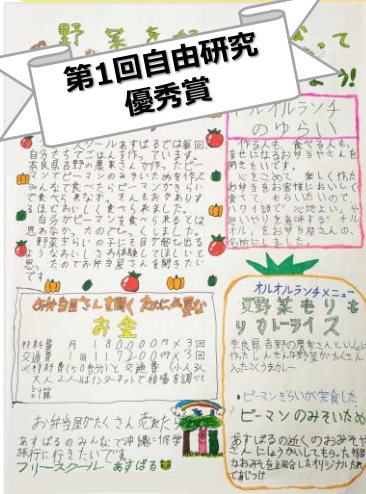 野菜を
って
第1回自由研究
優秀賞
う!
オルオルランチ
のゆらい
スクールあすぱるでは毎回
自分たちでごはんを作っています。
奈良県吉野の農家さんが作ったピー
マンでピーマンのみそいためを作り
みんなで食べたらピーマンがきらい
で食べられ
るほどおいしく食べられました。
自分がピーマンを食べられるとは
思わなかったのでびっくりしました。
野菜ぎらいの子にも目が飛び出る
ようなおいしさお体験してほしいと
思ったのでお弁当屋さんを開きたい
です。
作る人も、食べる人も、
幸せになるお弁当やさんを
開きたいです。
心をこめて、楽しく作った
お弁当をお客様においしく
食べてもらいたいので、
ハワイ語で「心地よい」や
オル」をお弁当屋さんの、
名前にしました。
お弁当屋さんを開くために必要な
お金
材料費 月 180000円×3回
交通費 1回 117200円×3回
大人2人はインターネットで相場を調べて
計算
オルオルランチメニュー
夏野菜もりも
りカレーライス
奈良県吉野の農家さんといっしょに
作ったしんせんな野菜がたくさん
入ったごくうまカレー
・ピーマンぎらいが完食した
ピーマンのみそいため
あすぱるの近くのおみそや
さんにしょうかいしてもらった
なおみそを調合したオリジナルみそ
で味つけ
お弁当がたくさん売れたら
あすぱるのみんなで沖縄に修学
旅行に行きたいです。
フリースクール あすぱる